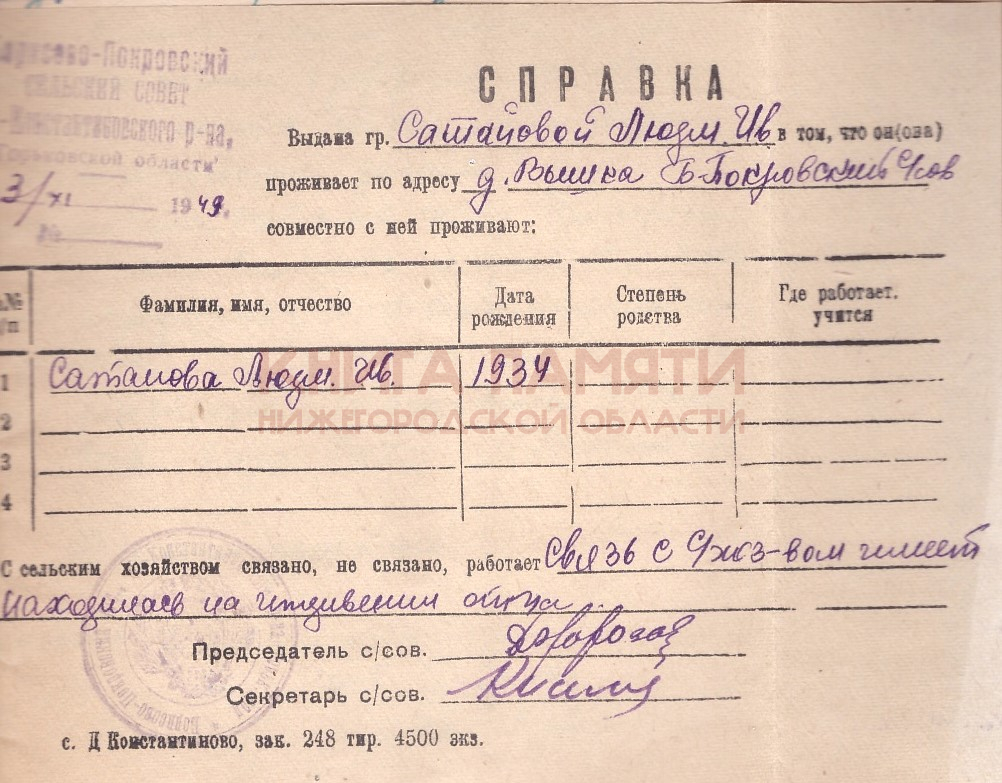 Борисово-Покровский
СЕЛЬСКИЙ СОВЕТ
Константиновского р-на,
Горьковской области
3/XI 1949.
№
СПРАВКА
Выдана гр. Сатаиовой Людм. Ив в том, что он(она)
проживает по адресу д. Вышка Б-Покровский С/сов
совместно с ней проживают:
п.№ п/п Фамилия, имя, отчество Дата рождения Степень родства Где работает. учится
1 Сатаиова Людм. Ив. 1934
2
3
4
КНИГА ПАМЯТИ
НИЖЕГОРОДСКОЙ ОБЛАСТИ
С сельским хозяйством связано, не связано, работает Связь с С/хоз-вом имеет
находилась на иждивении отца
Председатель с/сов.
Секретарь с/сов.
с. Д Константиново, зак. 248 тир. 4500 экз.